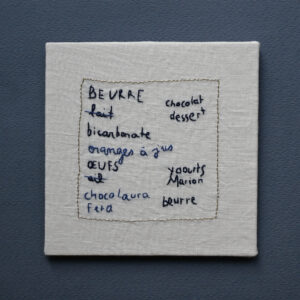 BEURRE
lait
bicarbonate
oranges à jus
ŒUFS
ail
chocolaura
feta
chocolat
dessert
yaourts
Marion
beurre